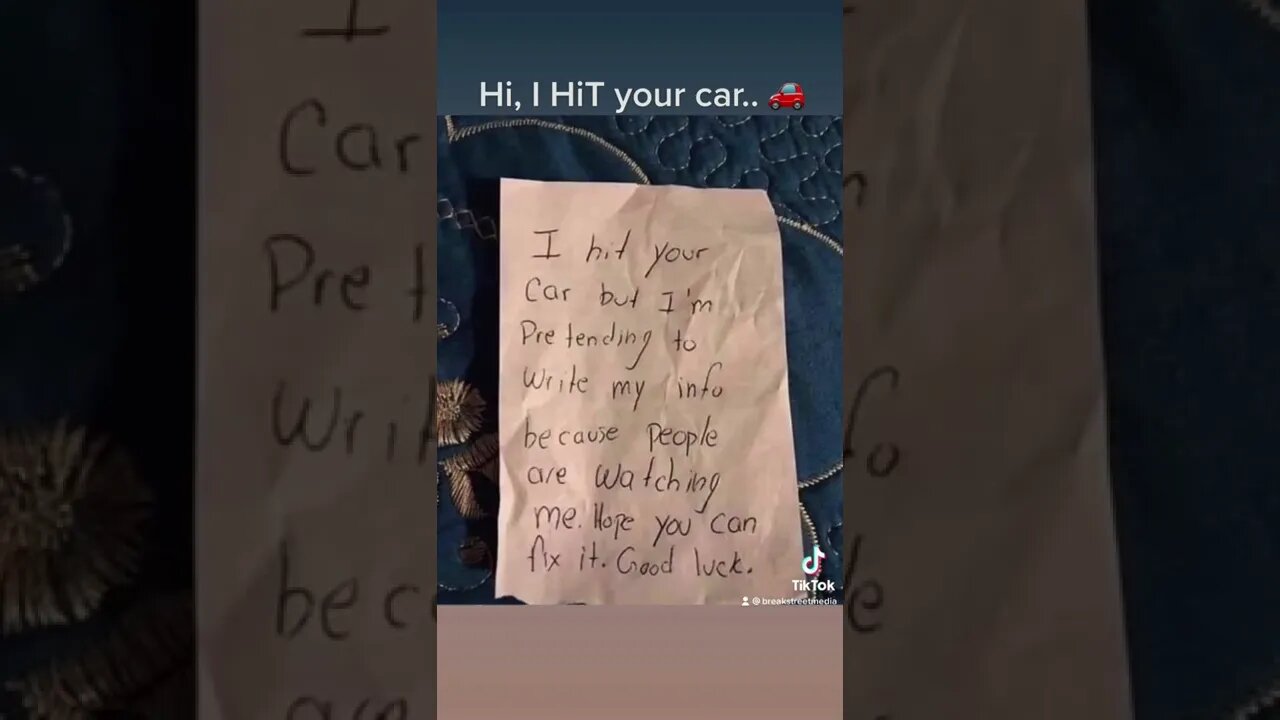 Hi, I HiT your car.. 🚗
I hit your
Car but I'm
Pretending to
Write my info
because people
are watching
me. Hope you can
fix it. Good luck.
TikTok
@breakstreetmedia
I
Car
Pret
Wri
bec
are
n
fo
e